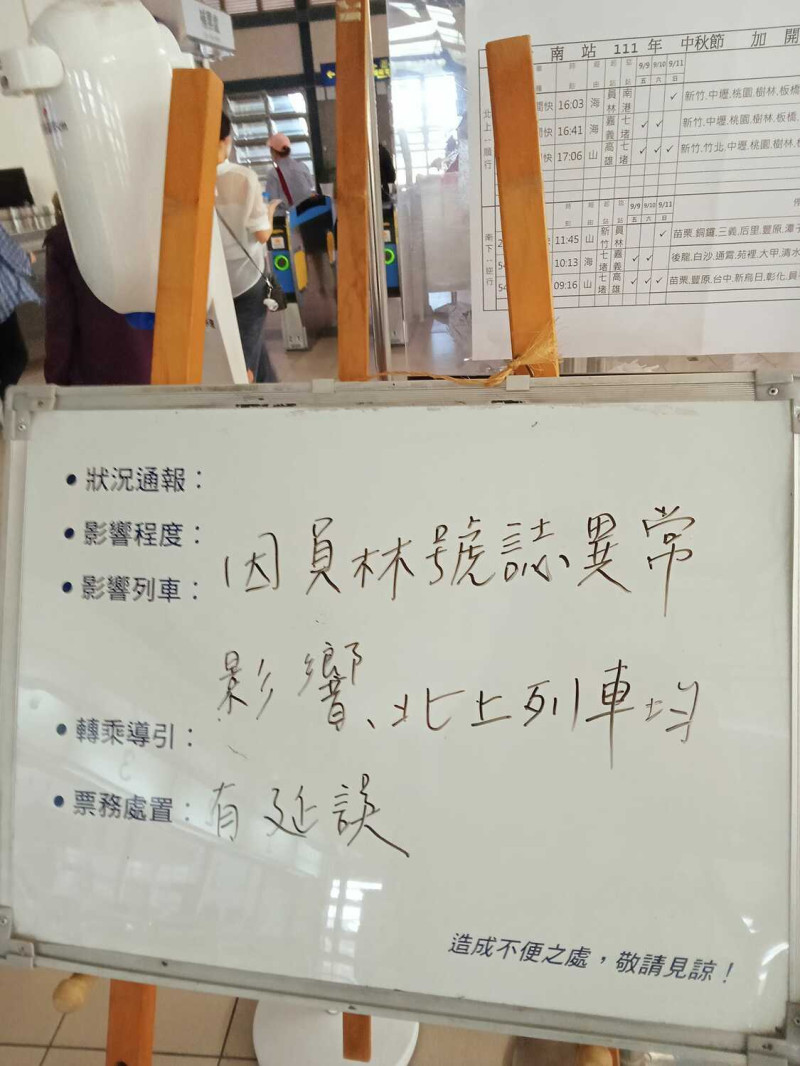 補票處
南站 111 年 中秋節 加 開
9/9 9/10 9/11
五 六 日
北上︰順行
快 16:03 海 員林 南港 ✓ 新竹,中壢,桃園,樹林,板橋
快 16:41 海 嘉義 七堵 ✓ ✓ 新竹,中壢,桃園,樹林,板橋,
快 17:06 山 高雄 七堵 ✓ ✓ ✓ 新竹,竹北,中壢,桃園,樹林,
9/9 9/10 9/11
五 六 日
南下︰逆行
11:45 山 新竹 員林 ✓ 苗栗,銅鑼,三義,后里,豐原,潭子
10:13 海 七堵 嘉義 ✓ ✓ 後龍,白沙,通霄,苑裡,大甲,清水
09:16 山 七堵 高雄 ✓ ✓ ✓ 苗栗,豐原,台中,新烏日,彰化,員
•狀況通報：
•影響程度：
•影響列車：
因員林號誌異常
影響、北上列車均
•轉乘導引：
•票務處置：
有延誤
造成不便之處，敬請見諒！